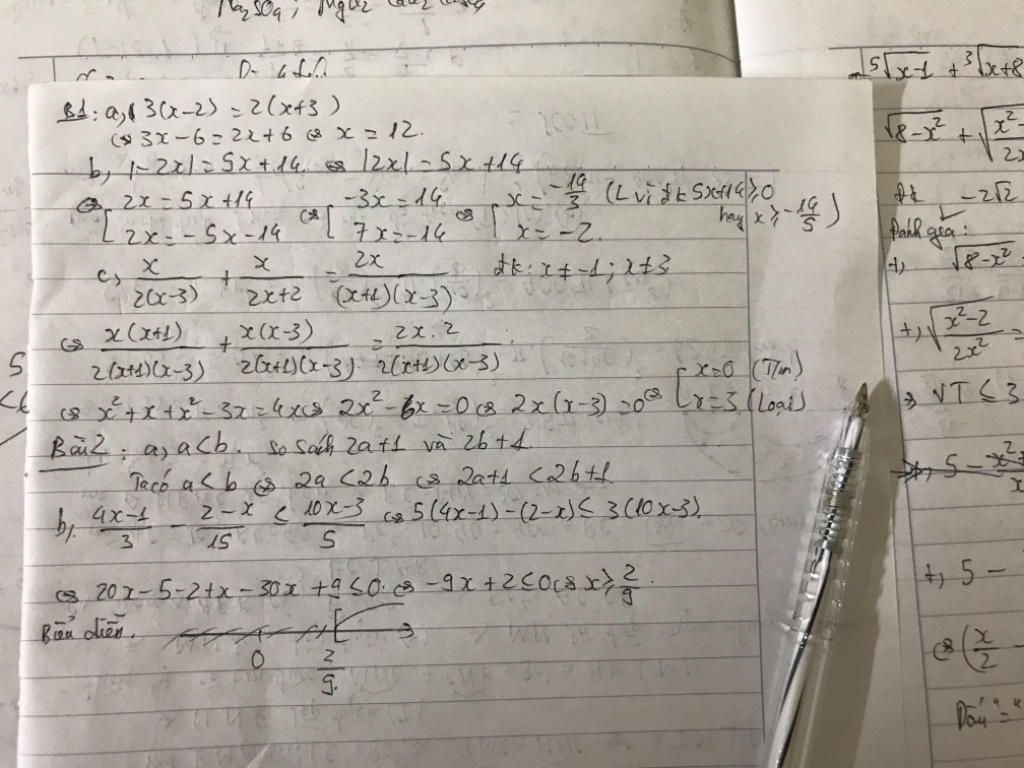 Na₂SO₄;
B1: a, 3(x-2) = 2(x+3)
⇔ 3x-6 = 2x+6 ⇔ x = 12.
b, |-2x| = 5x+14. ⇔ |2x| = 5x+14
⇔ [2x = 5x+14 ⇔ [-3x = 14 ⇔ [x = -14/3 (L vì đk 5x+14 ≥ 0
[2x = -5x-14 [7x = -14 [x = -2. hay x ≥ -14/5)
c, x/2(x-3) + x/2x+2 = 2x/(x+1)(x-3) đk: x ≠ -1; x ≠ 3
⇔ x(x+1)/2(x+1)(x-3) + x(x-3)/2(x+1)(x-3) = 2x.2/2(x+1)(x-3).
⇔ x²+x+x²-3x = 4x ⇔ 2x²-6x = 0 ⇔ 2x(x-3) = 0 ⇔ [x=0 (T/m)
[x=3 (Loại)
Bài 2: a, a<b. so sách 2a+1 và 2b+1.
Ta có a<b ⇔ 2a<2b ⇔ 2a+1 <2b+1
b, 4x-1/3 - 2-x/15 ≤ 10x-3/5 ⇔ 5(4x-1)-(2-x) ≤ 3(10x-3).
⇔ 20x-5-2+x-30x+9 ≤ 0. ⇔ -9x+2 ≤ 0 ⇔ x ≥ 2/9.
Biểu diễn.
0 2/9.
⁵√x-1 + ³√x+8
√8-x² +
đk -2√2
Đánh giá:
+, √8-x²
+, √x²-2/2x² =
⇒ VT ≤ 3
+, 5 -
⇔ (x/2 -
Dấu "="
5